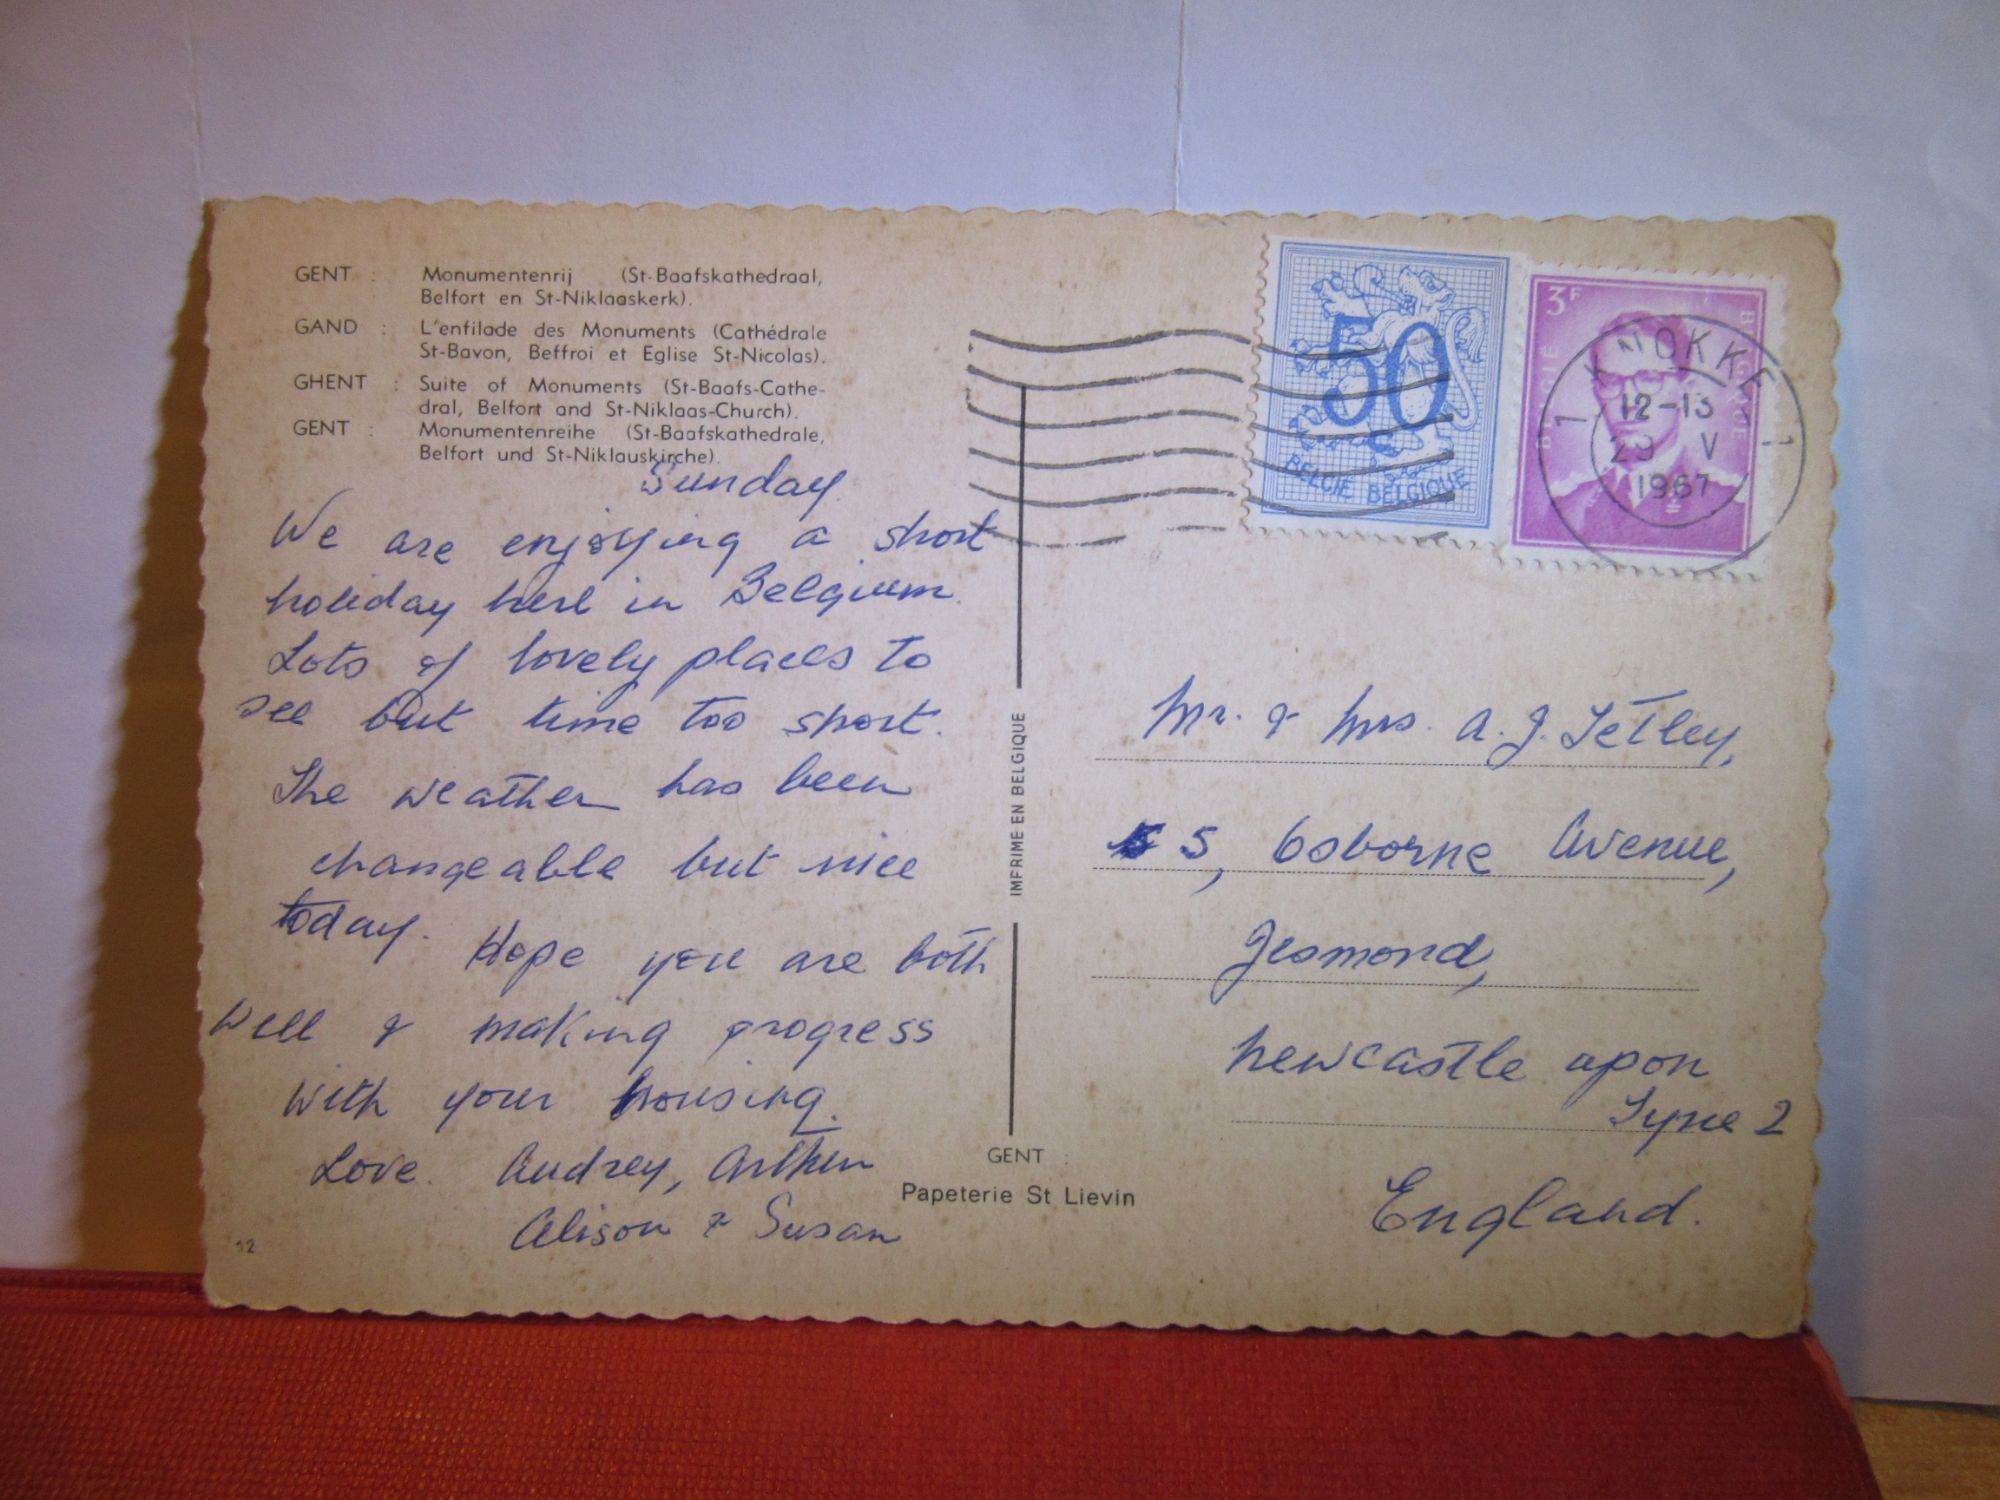 GENT : Monumentenrij (St-Baafskathedraal,
Belfort en St-Niklaaskerk).
GAND : L'enfilade des Monuments (Cathédrale
St-Bavon, Beffroi et Eglise St-Nicolas).
GHENT : Suite of Monuments (St-Baafs-Cathe-
dral, Belfort and St-Niklaas-Church).
GENT : Monumentenreihe (St-Baafskathedrale,
Belfort und St-Niklauskirche).
Sunday.
We are enjoying a short
holiday here in Belgium.
Lots of lovely places to
see but time too short.
The weather has been
changeable but nice
today. Hope you are both
well & making progress
with your housing.
Love. Audrey, Arthur
Alison & Susan
12
IMPRIME EN BELGIQUE
GENT :
Papeterie St Lievin
50
BELGIE BELGIQUE
3F
BELGIE
BELGIQUE
1 KNOKKE 1
12-13
29 V
1967
Mr. & Mrs. A. J. Tetley,
5, Osborne Avenue,
Jesmond,
Newcastle upon
Tyne 2
England.